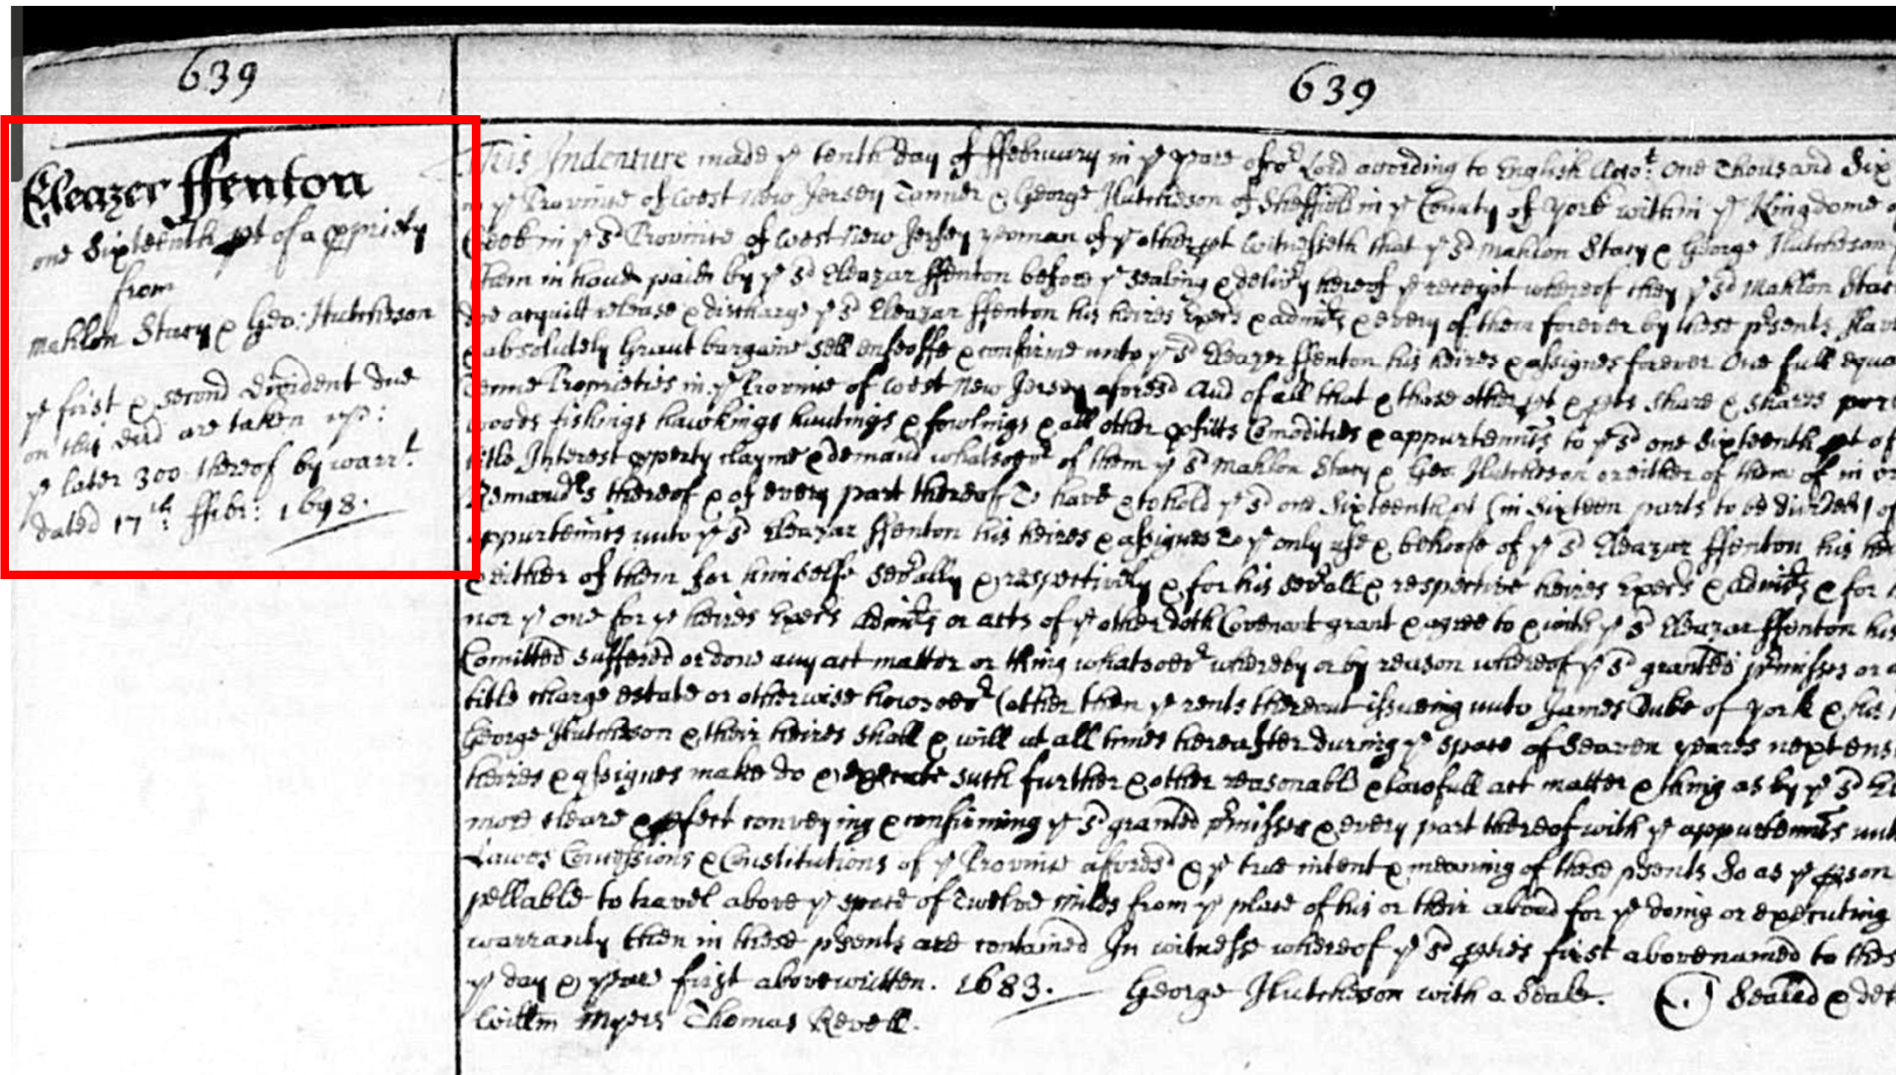 639
639
Eleazer ffenton
one Sixteenth pt of a ppriety
from
Mahlon Stacy & Geo: Hutcheson
ye first & second divident due
on this deed are taken up:
ye later 300 thereof by warrt
dated 17th ffebr: 1698.
This Indenture made ye tenth day of ffebruary in ye yeare of or Lord according to English Acot. One Thousand Six
in ye Province of West New Jersey Tanner & George Hutcheson of Sheffield in ye County of York within ye Kingdome
in ye sd Province of West New Jersey yeoman of ye other pt Witnesseth that ye sd Mahlon Stacy & George Hutcheson
them in hand paid by ye sd Eleazar ffenton before ye sealing & delivry hereof ye receipt whereof they ye sd Mahlon Stac
doe acquitt release & discharge ye sd Eleazar ffenton his heires Execrs & admrs & every of them forever by these prsents Hav
& absolutely Graunt bargaine sell enfeoffe & confirme unto ye sd Eleazer ffenton his heires & assignes forever One full equa
Tenne Proprieties in ye Province of West New Jersey aforesd And of all that & those other pt & pts share & shares
woods fishings hawkings huntings & fowlings & all other pfitts Comodities & appurtennces to ye sd one Sixteenth pt of
title Interest pperty clayme & demand whatsoevr of them ye sd Mahlon Stacy & Geo Hutcheson or either of them of in or
Remaindrs thereof & of every part thereof To have & to hold ye sd one Sixteenth pt (in Sixteen parts to be divided) of
appurtennces unto ye sd Eleazar ffenton his heires & assignes to ye only use & behoofe of ye sd Eleazar ffenton his hei
& either of them for himselfe sevrally & respectively & for his sevrall & respective heires Execrs & admrs & for
nor ye one for ye heires Execrs Admrs or acts of ye other doth Covenant grant & agree to & with ye sd Eleazar ffenton his
Comitted suffered or done any act matter or thing whatsoevr whereby or by reason whereof ye sd granted prmisses or
title charge estate or otherwise howsoevr (other then ye rents thereout issueing unto James Duke of York & his
George Hutcheson & their heires shall & will at all times hereafter during ye space of Seaven yeares next ens
heires & assignes make do & execute such further & other reasonable & lawfull act matter & thing as by ye sd El
more cleare & pfect conveying & confirming ye sd granted prmisses & every part thereof with ye appurtennces unt
Lawes Concessions & Constitutions of ye Province aforesd & ye true intent & meaning of these prsents So as ye pson
pellable to travel above ye space of Twelve miles from ye place of his or their aboad for ye doing or executing
warranty then in these prsents are contained In witness whereof ye sd pties first abovenamed to thes
ye day & yeare first abovewritten. 1683. George Hutcheson with a Seale. Sealed & del
Willm Myers Thomas Revell.